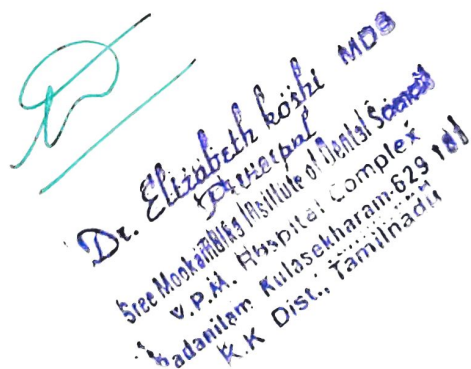 Dr. Elizabeth koshi MDS
Principal
Sree Mookambika Institute of Dental Science
V.P.M. Hospital Complex
Padanilam Kulasekharam-629 161
K.K Dist., Tamilnadu